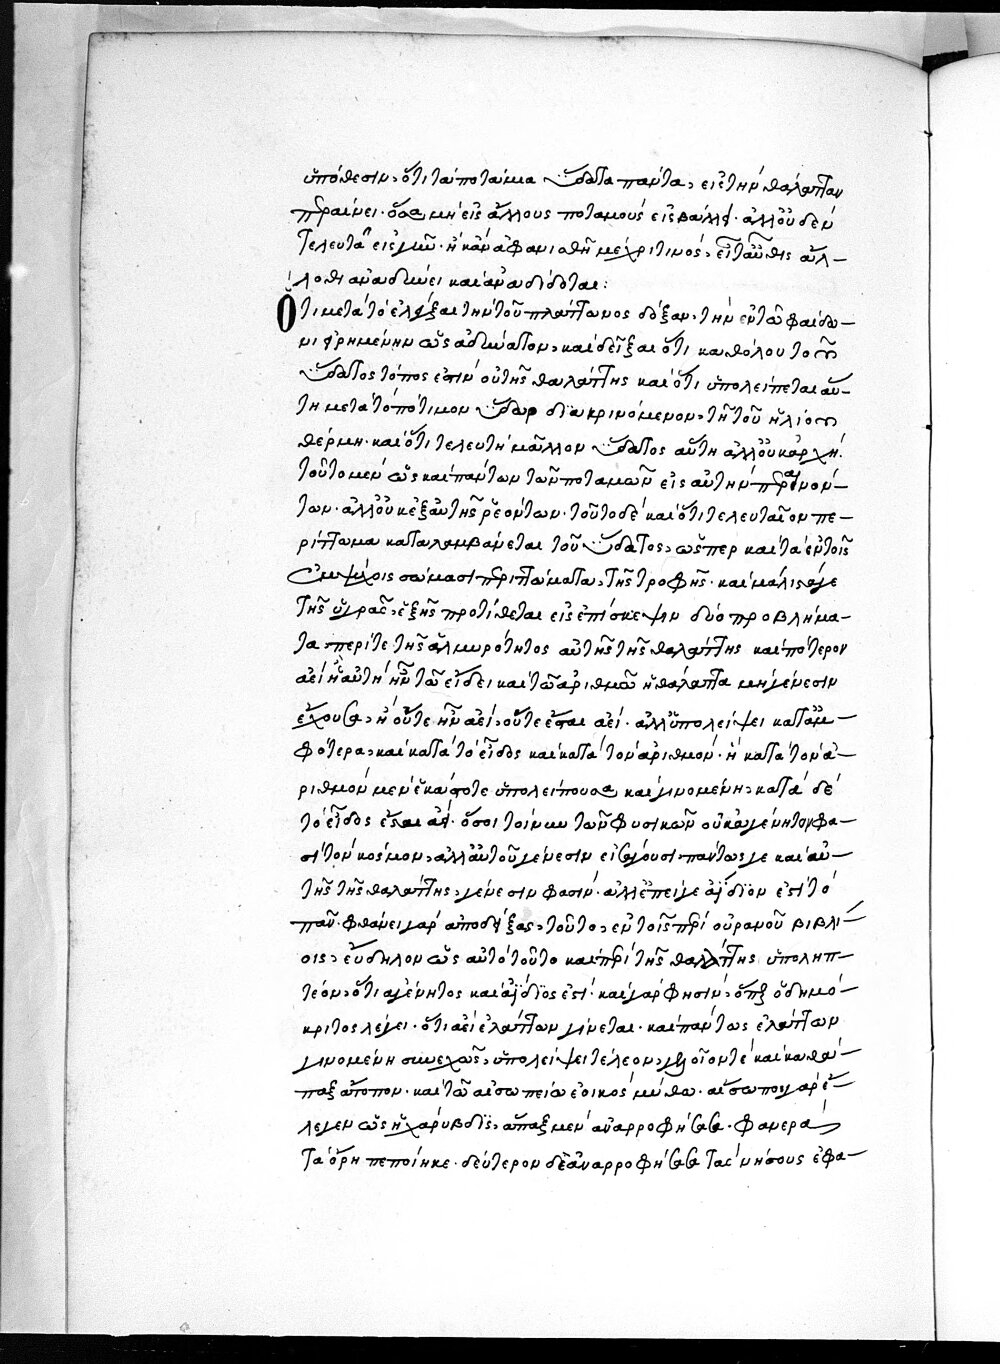 ὑπόθεσιν, ὅτι τὰ ποτάμια ὕδατα πάντα, εἰς τὴν θάλατταν
περαίνει. ὅσα μὴ εἰς ἄλλους ποταμοὺς εἰσβάλλει. ἀλλ' οὐδὲν
τελευτᾷ εἰς γῆν. ἢ κἂν ἀφανισθῇ μέχρι τινὸς, εἶτ' αὖθις ἀλ-
λοθι ἀναδύνει καὶ ἀναδίδοται:
Ὅτι μετὰ τὸ ἐλέγξαι τὴν τοῦ πλάττωνος δόξαν, τὴν ἐν τῷ φαίδω-
νι εἰρημένην ὡς ἀδύνατον, καὶ δεῖξαι ὅτι καθόλου τοῦ
ὕδατος τόπος ἐστὶν οὐ τῆς θαλάττης καὶ ὅτι ὑπολείπεται αὐ-
τῇ μετὰ τὸ πότιμον ὕδωρ διακρινόμενον, τῇ τοῦ ἡλίου
θέρμῃ. καὶ ὅτι τελευτὴ μᾶλλον ὕδατος αὕτη ἀλλ' οὐκ ἀρχή.
τοῦτο μὲν ὡς καὶ πάντων τῶν ποταμῶν εἰς αὐτὴν περαινόν-
των. ἀλλ' οὐκ ἐξ αὐτῆς ῥεόντων. τοῦτο δὲ καὶ ὅτι τελευταῖον πε-
ρίττωμα καταλαμβάνεται τοῦ ὕδατος, ὥσπερ καὶ τὰ ἐν τοῖς
ἐμψύχοις σώμασι περιττώματα, τῆς τροφῆς. καὶ μάλιστά γε
τῆς ὑγρᾶς, ἑξῆς προτίθεται εἰς ἐπίσκεψιν δύο προβλήμα-
τα, περί τε τῆς ἁλμυρότητος αὐτῆς τῆς θαλάττης καὶ πότερον
ἀεὶ ἡ αὐτὴ ἦν τῷ εἴδει καὶ τῷ ἀριθμῷ ἡ θάλαττα μὴ γένεσιν
ἔχουσα, ἢ οὔτε ἦν ἀεὶ, οὔτε ἔσται ἀεί. ἀλλ' ὑπολείψει κατ' ἀμ-
φότερα, καὶ κατὰ τὸ εἶδος καὶ κατὰ τὸν ἀριθμόν. ἢ κατὰ τὸν ἀ-
ριθμὸν μὲν ἑκάστοτε ὑπολείπουσα καὶ γινομένη, κατὰ δὲ
τὸ εἶδος ἔσται ἀεί. ὅσοι τοίνυν τῶν φυσικῶν οὐκ ἀγένητον φα-
σὶ τὸν κόσμον, ἀλλ' αὐτοῦ γένεσιν εἰσάγουσι πάντως γε καὶ αὐ-
τῆς τῆς θαλάττης, γένεσιν φασίν. ἀλλ' ἐπεί γε ἀΐδιόν ἐστι τὸ
πᾶν. φθάνει γὰρ ἀποδείξας, τοῦτο, ἐν τοῖς περὶ οὐρανοῦ βιβλί-
οις, εὔδηλον ὡς αὐτὸ τοῦτο καὶ περὶ τῆς θαλάττης ὑποληπ-
τέον, ὅτι ἀγένητος καὶ ἀΐδιός ἐστι. καὶ γάρ φησιν, ὅπερ ὁ δημό-
κριτος λέγει. ὅτι ἀεὶ ἐλάττων γίνεται. καὶ πάντως ἐλάττων
γινομένη συνεχῶς, ὑπολείψει τέλεον, οἷόν τε καὶ καθά-
παξ ἄτοπον. καὶ τῷ αἰσωπείῳ ἐοικὸς μύθῳ. αἴσωπος γὰρ ἔ-
λεγεν ὡς ἡ χάρυβδις, ἅπαξ μὲν ἀναρροφήσασα. φανερὰ
τὰ ὄρη πεποίηκε. δεύτερον δὲ ἀναρροφήσασα τὰς νήσους ἔφα-